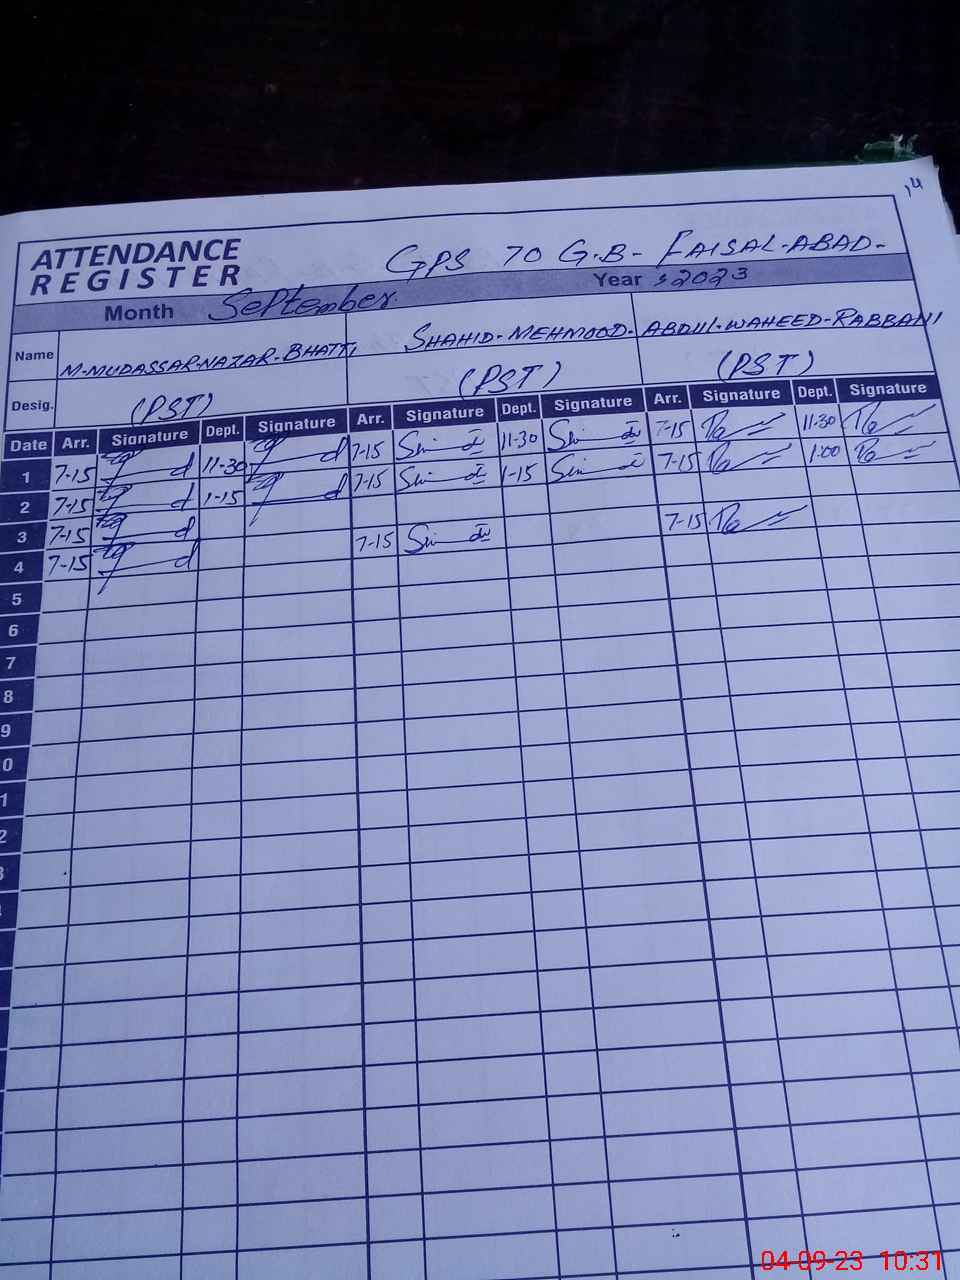 14
ATTENDANCE
REGISTER
GPS 70 G.B- FAISAL-ABAD-
Month September
Year 2023
Name M-MUDASSAR-NAZAR-BHATTI SHAHID-MEHMOOD- ABDUL-WAHEED-RABBANI
Desig. (PST) (PST) (PST)
Date Arr. Signature Dept. Signature Arr. Signature Dept. Signature Arr. Signature Dept. Signature
1 7-15 11-30 7-15 11-30 7-15 11-30
2 7-15 1-15 7-15 1-15 7-15 1:00
3 7-15
4 7-15 7-15 7-15
5
6
7
8
9
0
1
2
3
04-09-23 10:31